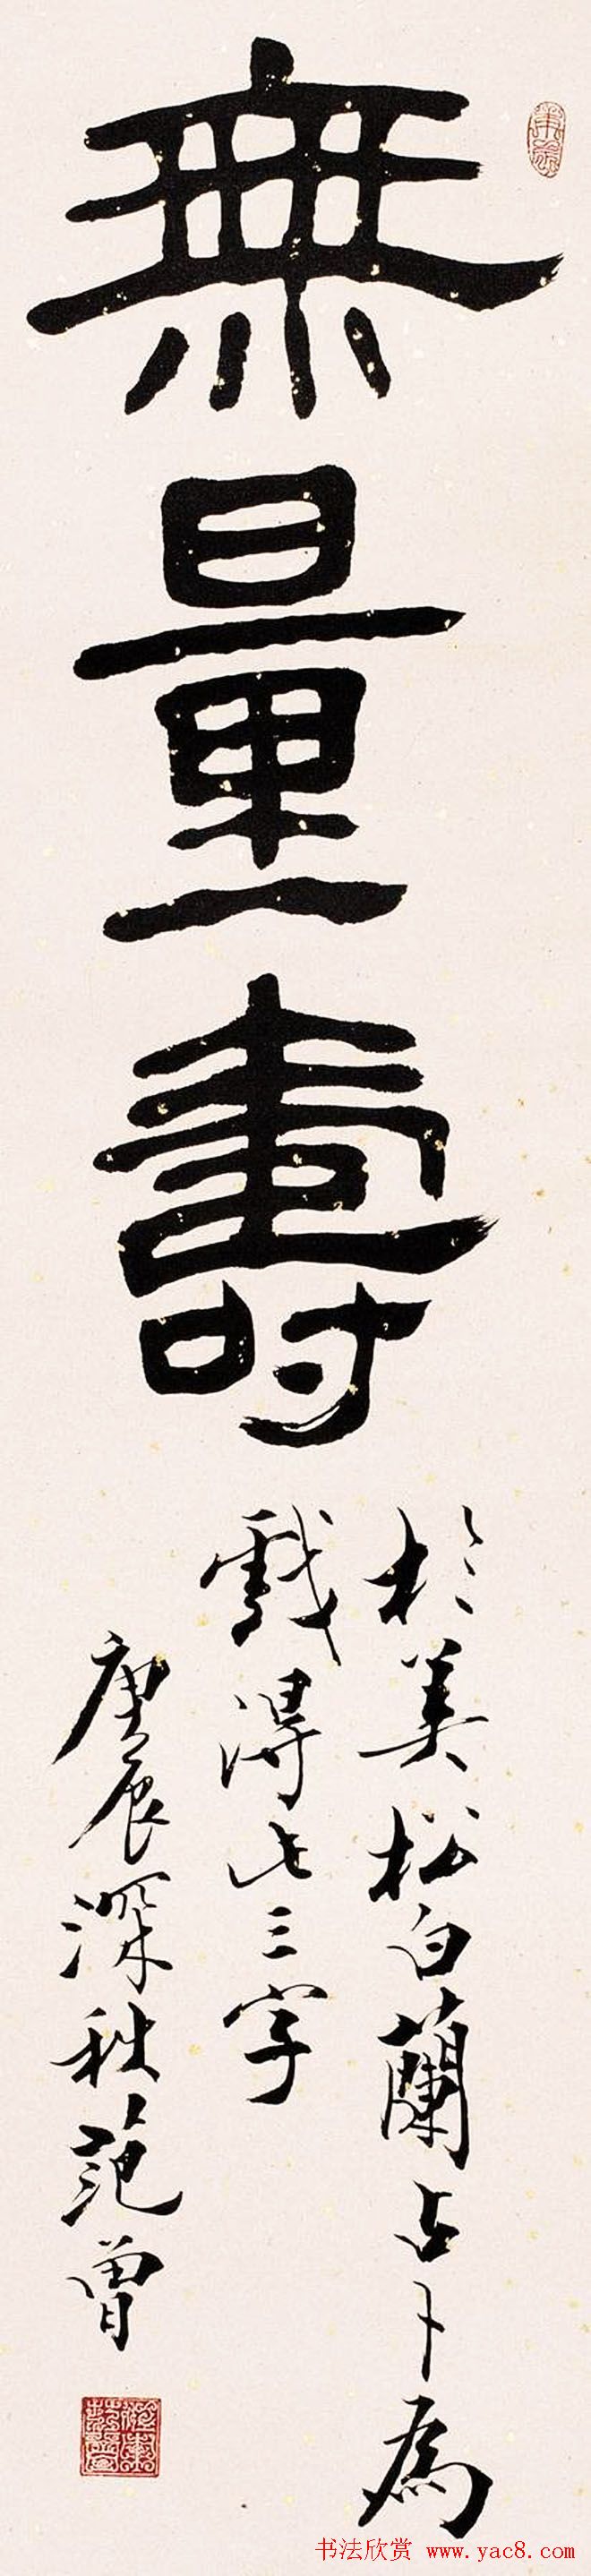 無量壽
於美松白蘭占卜為
戲得此三字
庚辰深秋范曾
书法欣赏 www.yac8.com